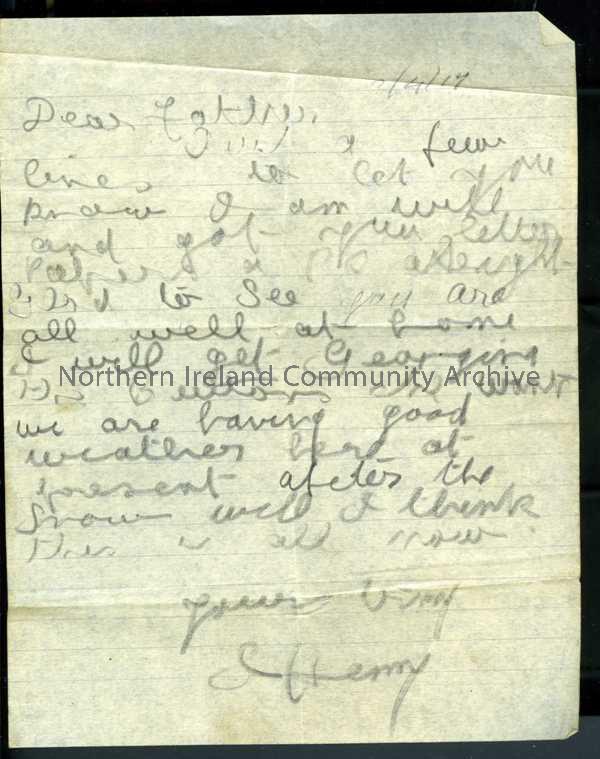 /4/17
Dear Father
Just a few
lines to let you
know I am well
and got your letter
Papers & alright
Glad to see you are
all well at home
I will get Georgina
the Buttons she want
Northern Ireland Community Archive
we are having good
weather here at
present after the
snow well I think
this is all now
yours
Henry